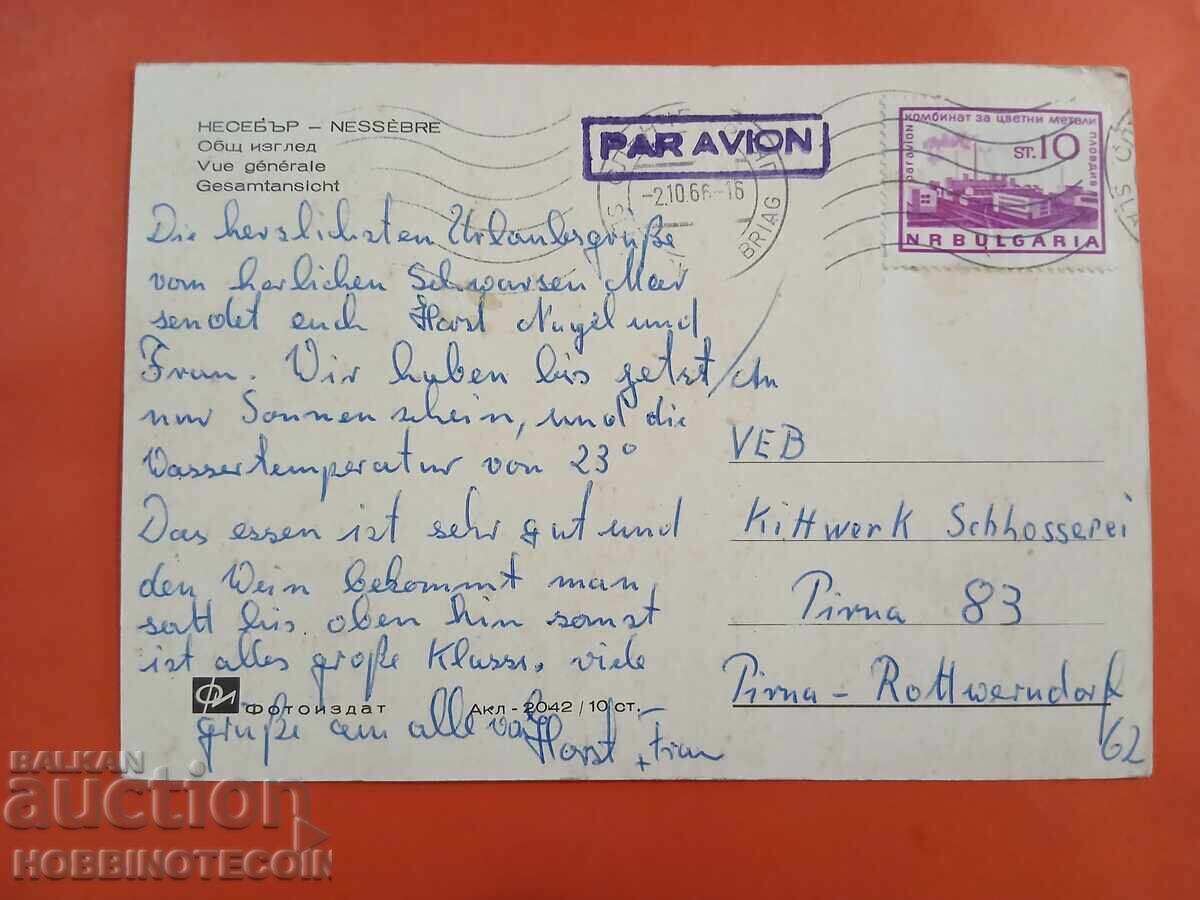 НЕСЕБЪР – NESSÈBRE
Общ изглед
Vue générale
Gesamtansicht
PAR AVION
-2.10.66-16
BRIAG
комбинат за цветни метали
par avion
пловдив
ST. 10
NRBULGARIA
Die herslichsten Urlaubsgrüße
vom herlichen Schwarsen Mer
sendet euch Horst Nagel und
Frau. Wir haben bis jetzt
nur Sonnenschein, und die
Wassertemperatur von 23°
Das essen ist sehr gut und
den Wein bekommt man
satt bis oben hin sonst
ist alles große Klasse. viele
grüße an alle von
Horst + Frau
An
VEB
Kittwerk Schlosserei
Pirna 83
Pirna - Rottwerndorf
62
Фотоиздат
Акл - 2042 / 10 ст.
BALKAN
auction
HOBBINOTECOIN